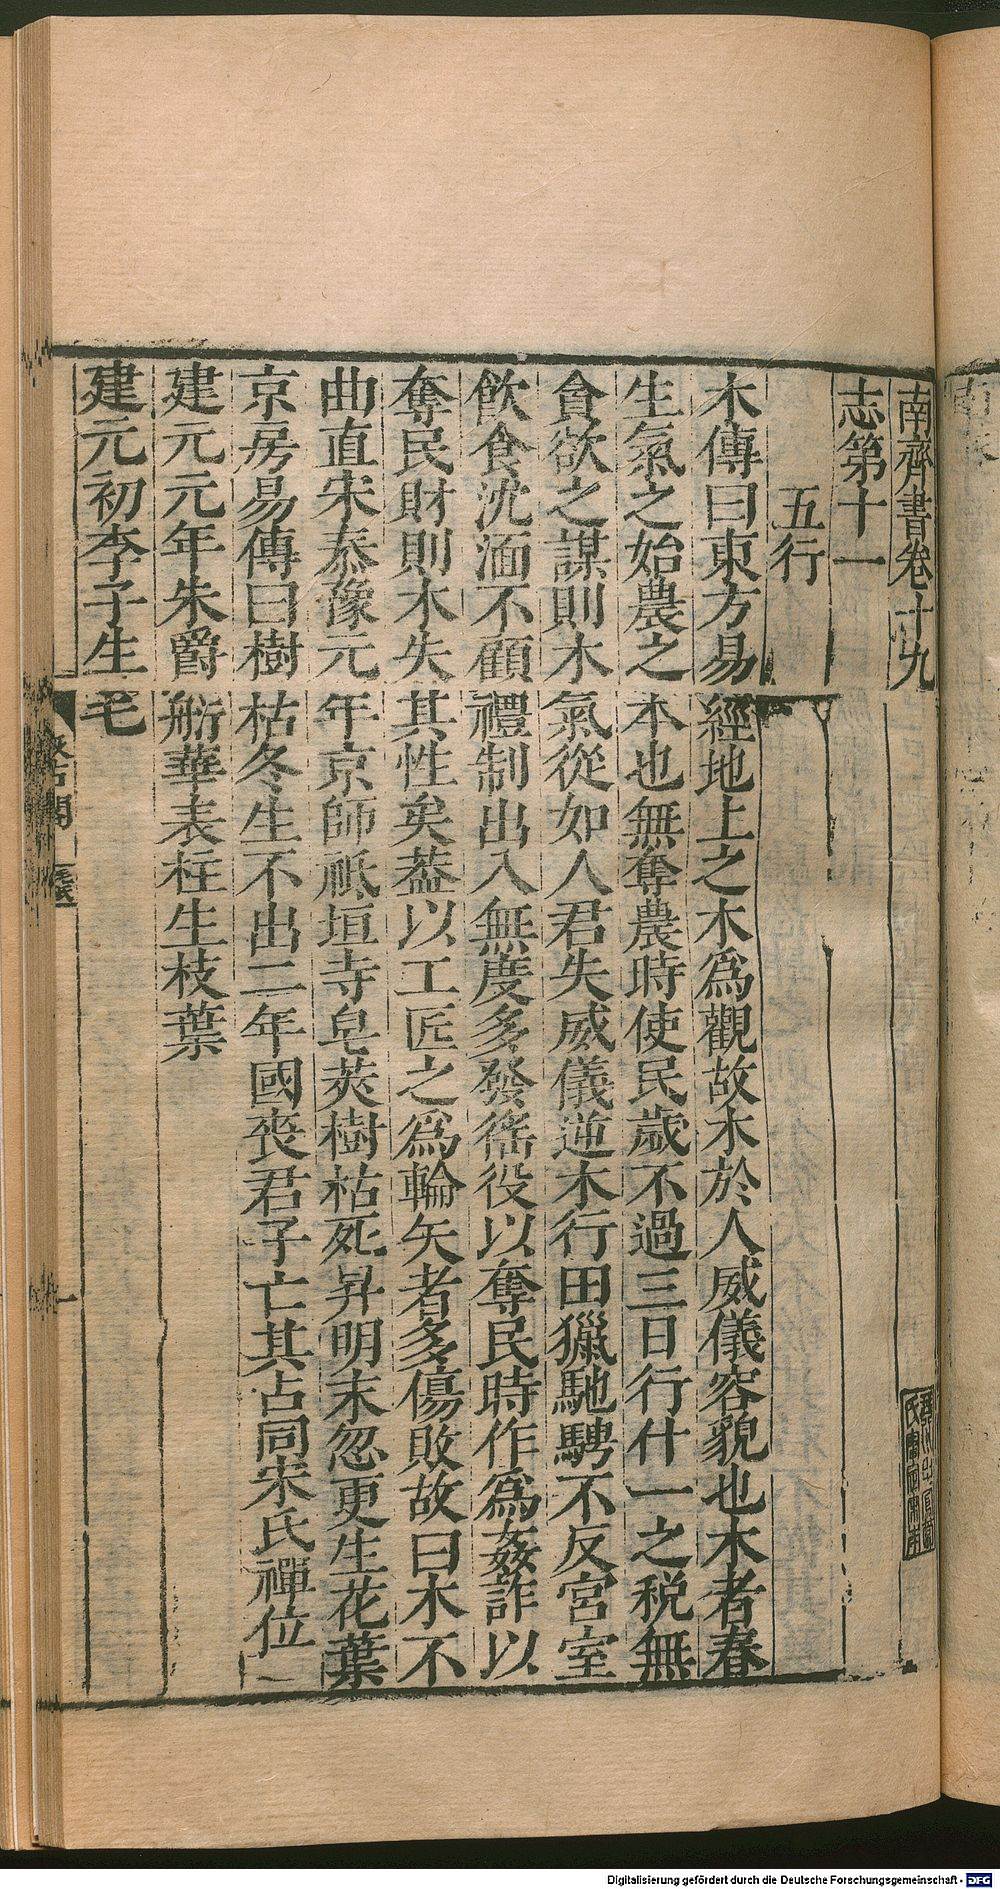 南齊書卷十九
志第十一
五行
木傳曰東方易經地上之木爲觀故木於人威儀容貌也木者春
生氣之始農之本也無奪農時使民歲不過三日行什一之税無
貪欲之謀則木氣從如人君失威儀逆木行田獵馳騁不反宮室
飲食沈湎不顧禮制出入無度多發徭役以奪民時作爲姦詐以
奪民財則木失其性矣葢以工匠之爲輪矢者多傷敗故曰木不
曲直宋泰豫元年京師祗垣寺皂莢樹枯死昇明末忽更生花葉
京房易傳曰樹枯冬生不出二年國喪君子亡其占同宋氏禪位
建元元年朱爵舫華表柱生枝葉
建元初李子生毛
一
Digitalisierung gefördert durch die Deutsche Forschungsgemeinschaft - DFG